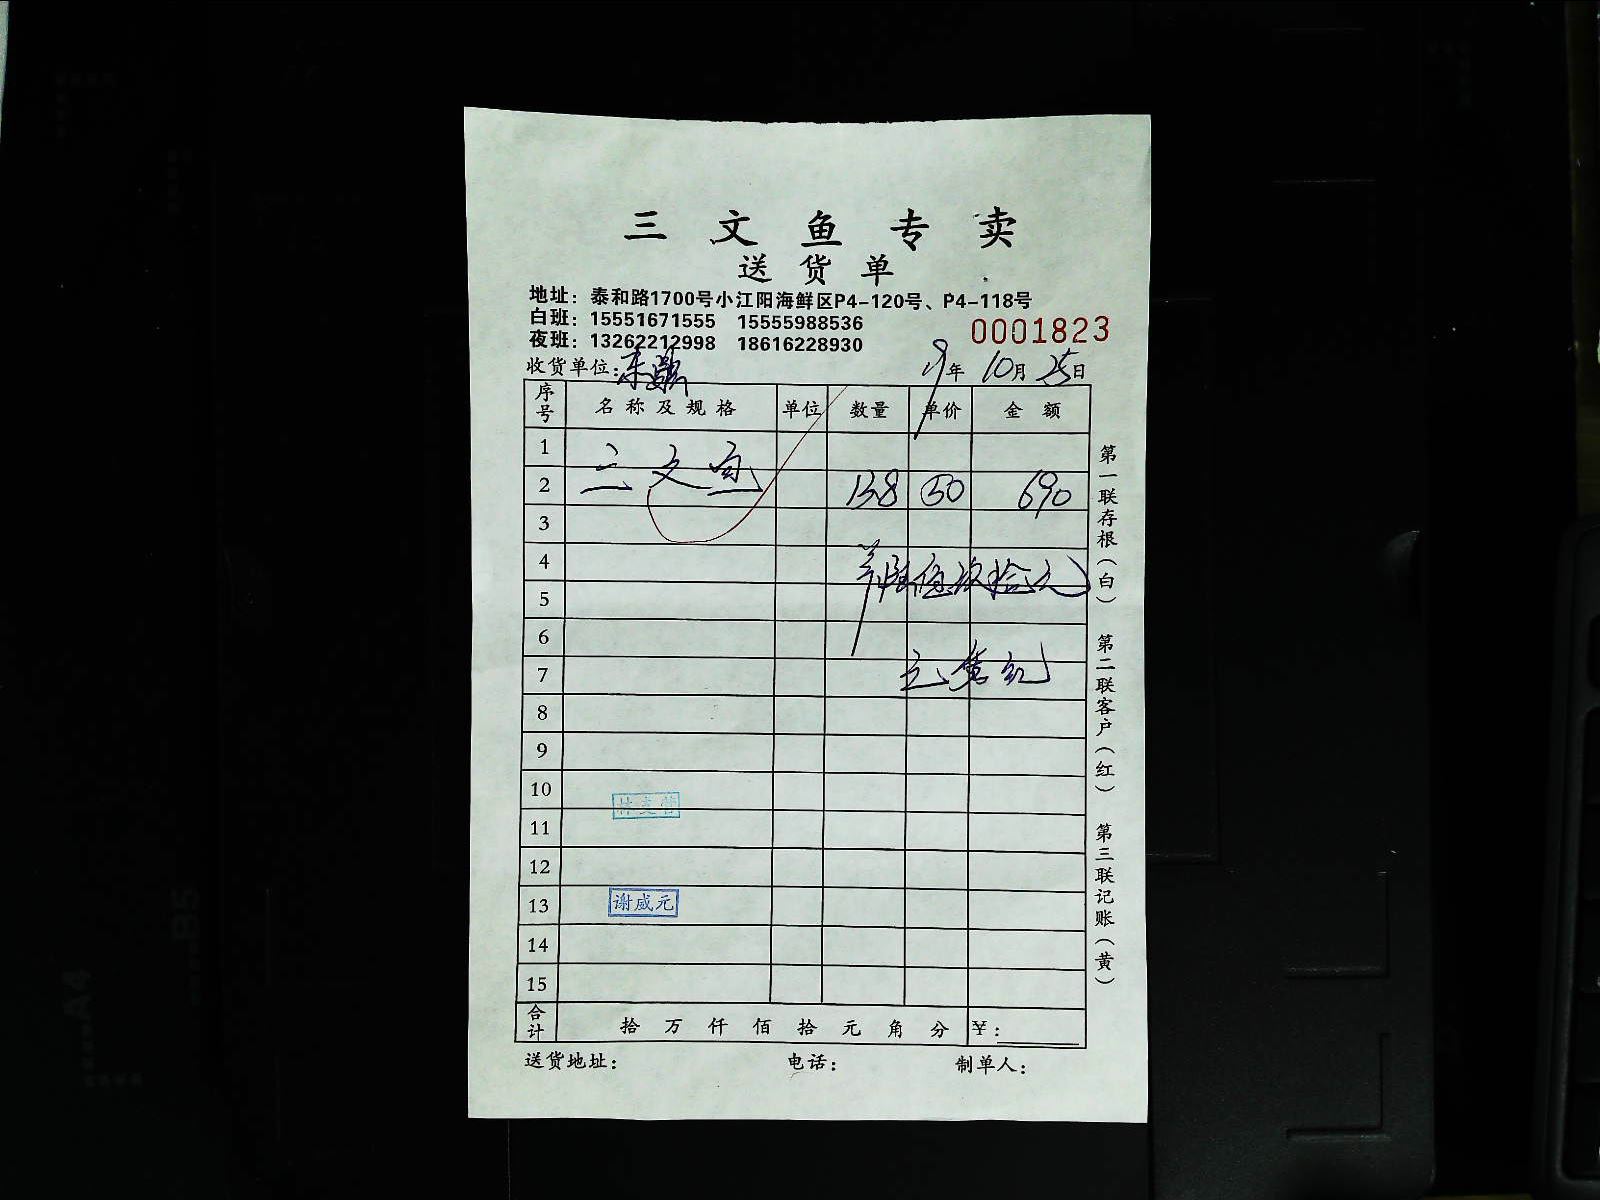 三文鱼专卖
送货单
地址：泰和路1700号小江阳海鲜区P4-120号、P4-118号
白班：15551671555 15555988536
夜班：13262212998 18616228930
0001823
收货单位：
19年10月25日
序号 名称及规格 单位 数量 单价 金额
1
2 三文鱼 13.8 50 690
3
4
5
6
7
8
9
10
11
12
13
14
15
谢威元
合计 拾 万 仟 佰 拾 元 角 分 ¥：
送货地址： 电话： 制单人：
第一联存根（白）
第二联客户（红）
第三联记账（黄）